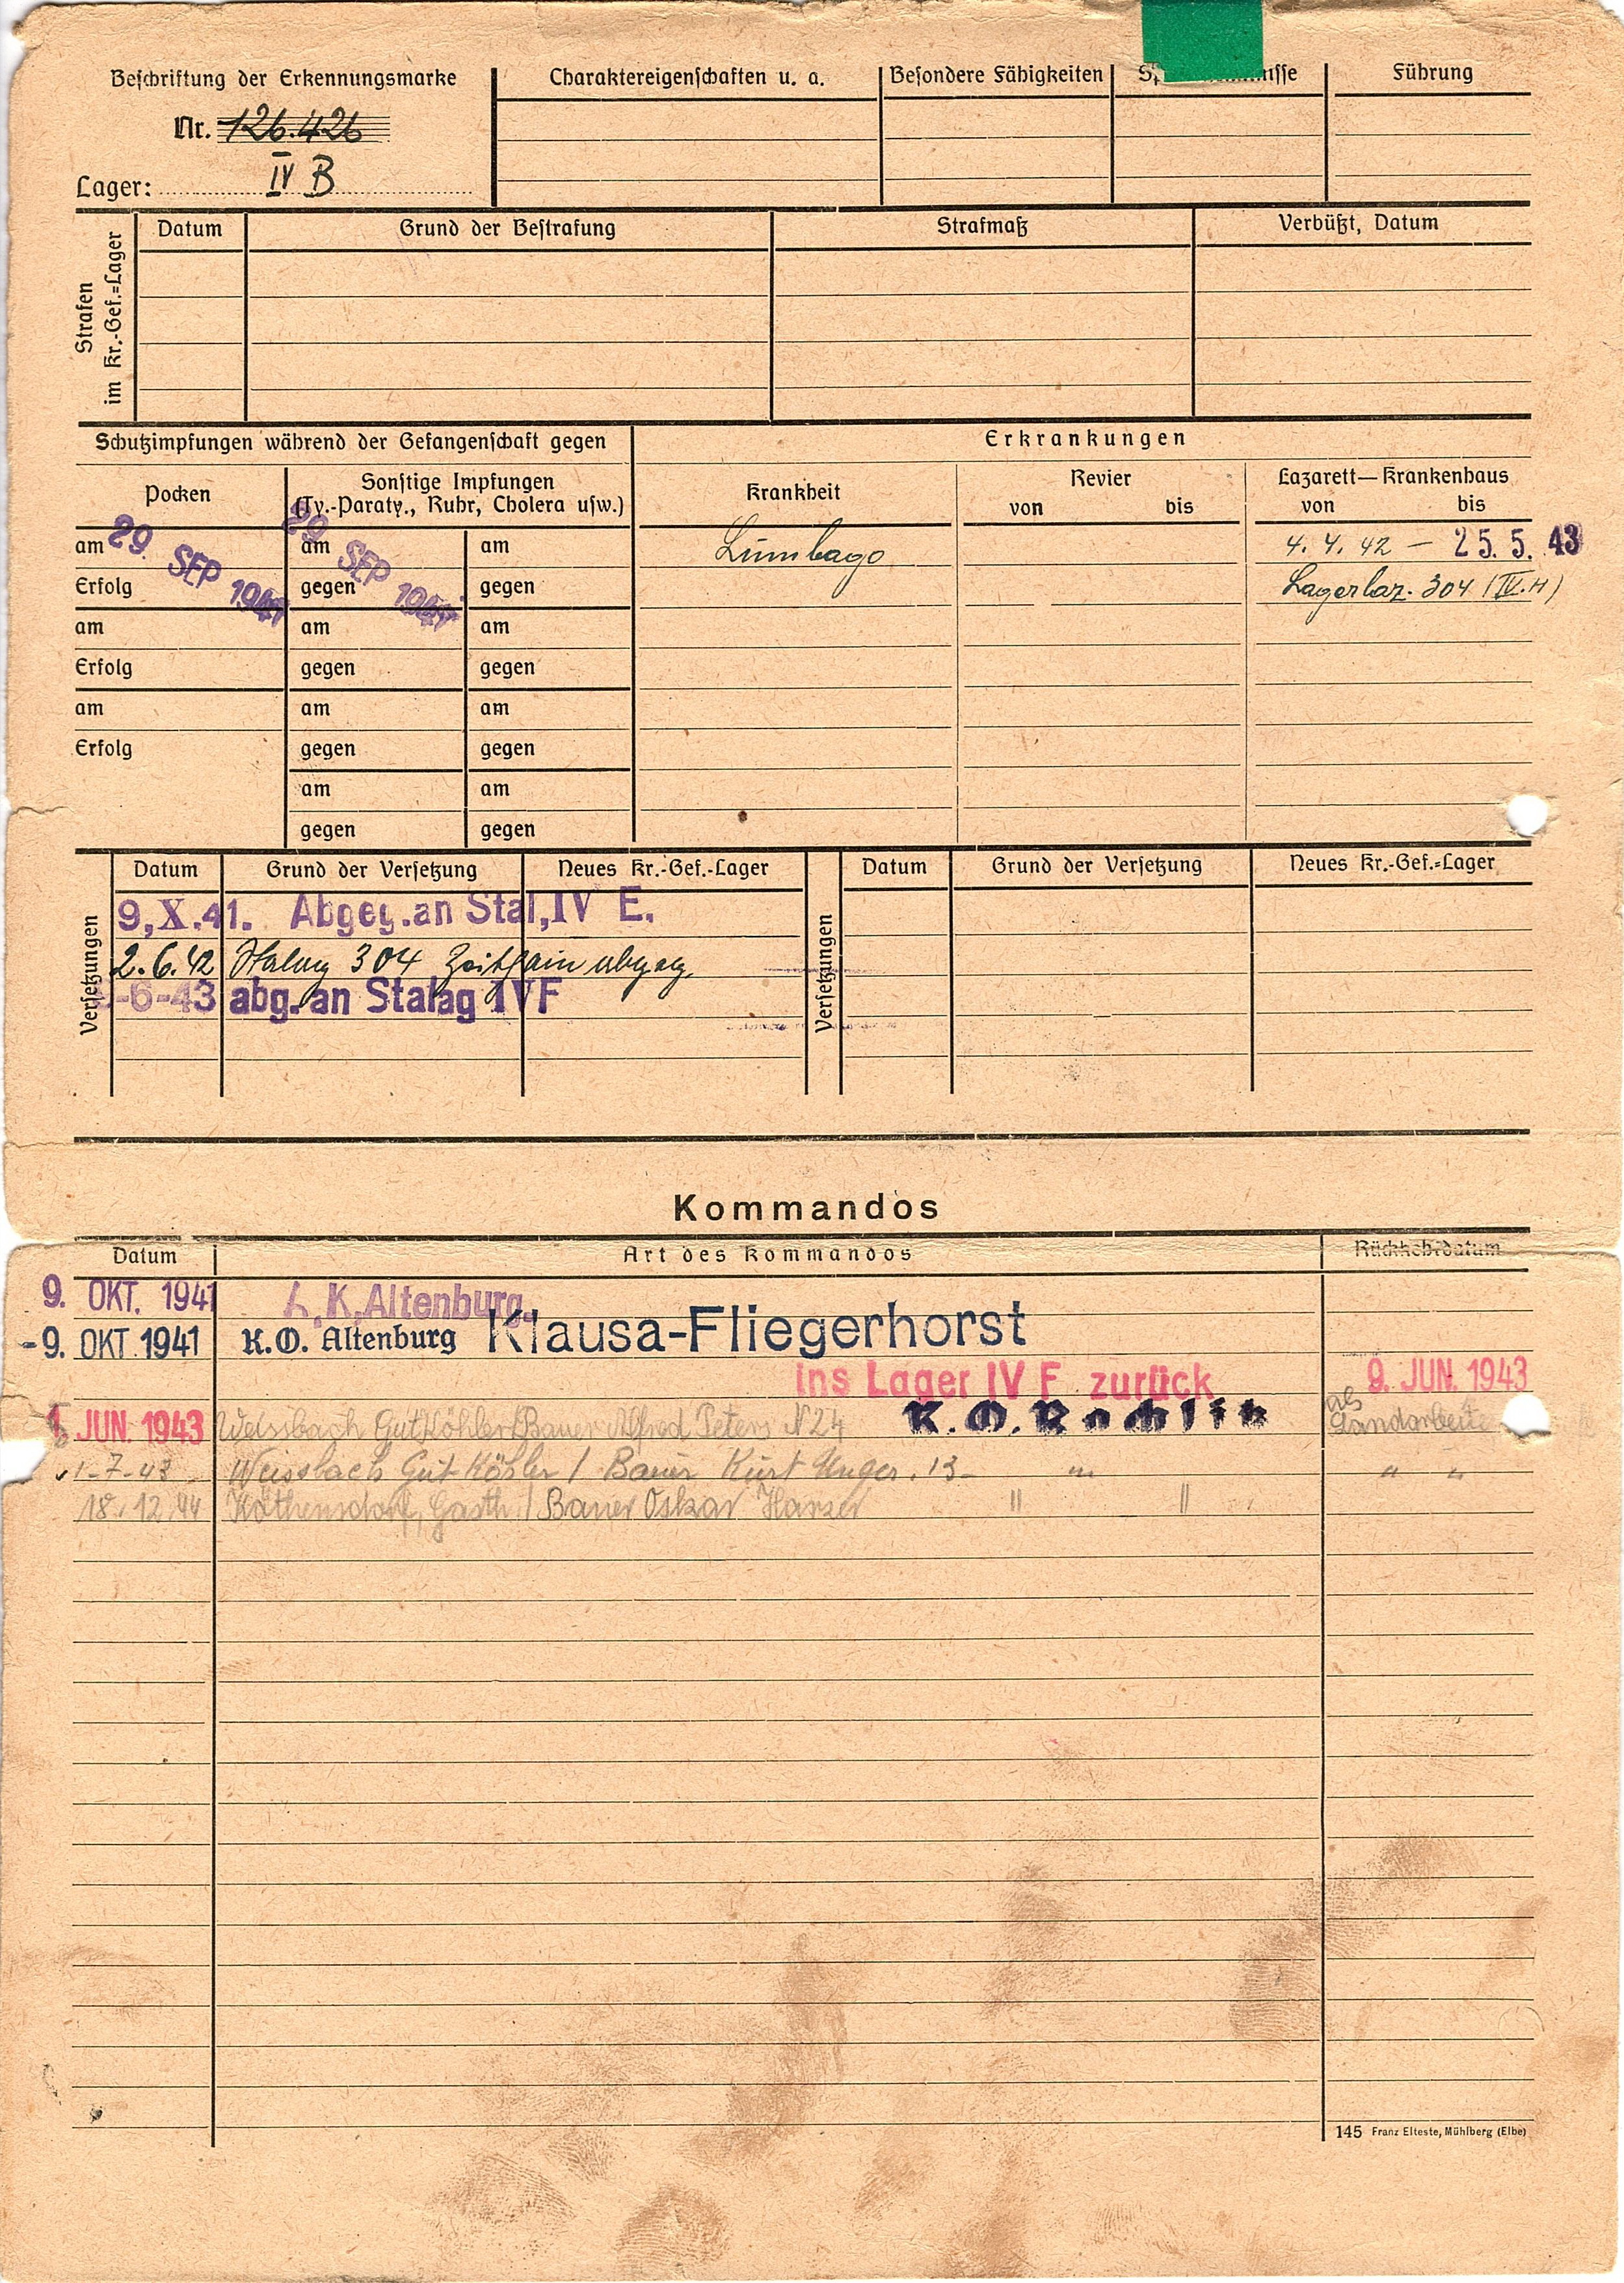 Beschriftung der Erkennungsmarke
Nr. 126.426
Lager: IV B
Charaktereigenschaften u. a.
Besondere Fähigkeiten
Führung
Strafen im Kr.-Gef.=Lager
Datum Grund der Bestrafung Strafmaß Verbüßt, Datum
Schutzimpfungen während der Gefangenschaft gegen
Erkrankungen
Pocken
Sonstige Impfungen
(Ty.-Paraty., Ruhr, Cholera usw.)
Krankheit
Revier
von bis
Lazarett—Krankenhaus
von bis
am 29. SEP 1941 am 29 SEP 1941 am
Lumbago 4. 4. 42 – 25. 5. 43
Erfolg gegen gegen
Lagerlaz. 304 (IV.H)
am am am
Erfolg gegen gegen
am am am
Erfolg gegen gegen
am am
gegen gegen
Versetzungen
Datum Grund der Versetzung Neues Kr.-Gef.-Lager
9,X.41. Abgeg.an Stal,IV E.
2.6.42 Stalag 304 Zeithain abgeg.
-6-43 abg.an Stalag IVF
Versetzungen
Datum Grund der Versetzung Neues Kr.-Gef.=Lager
Kommandos
Datum Art des Kommandos Rückkehrdatum
9. OKT. 1941 A.K.Altenburg.
-9. OKT 1941 K.O. Altenburg Klausa-Fliegerhorst
ins Lager IV F zurück 9. JUN. 1943
JUN. 1943 Weissbach Gut Köhler/Bauer Alfred Peters N 24 K.O.Rochlitz als Landarbeiter
1-7-43 Weissbach Gut Köhler / Bauer Kurt Unger. 13 - " " "
18.12.44 Köthensdorf, Gasth. / Bauer Oskar " "
145 Franz Elteste, Mühlberg (Elbe)